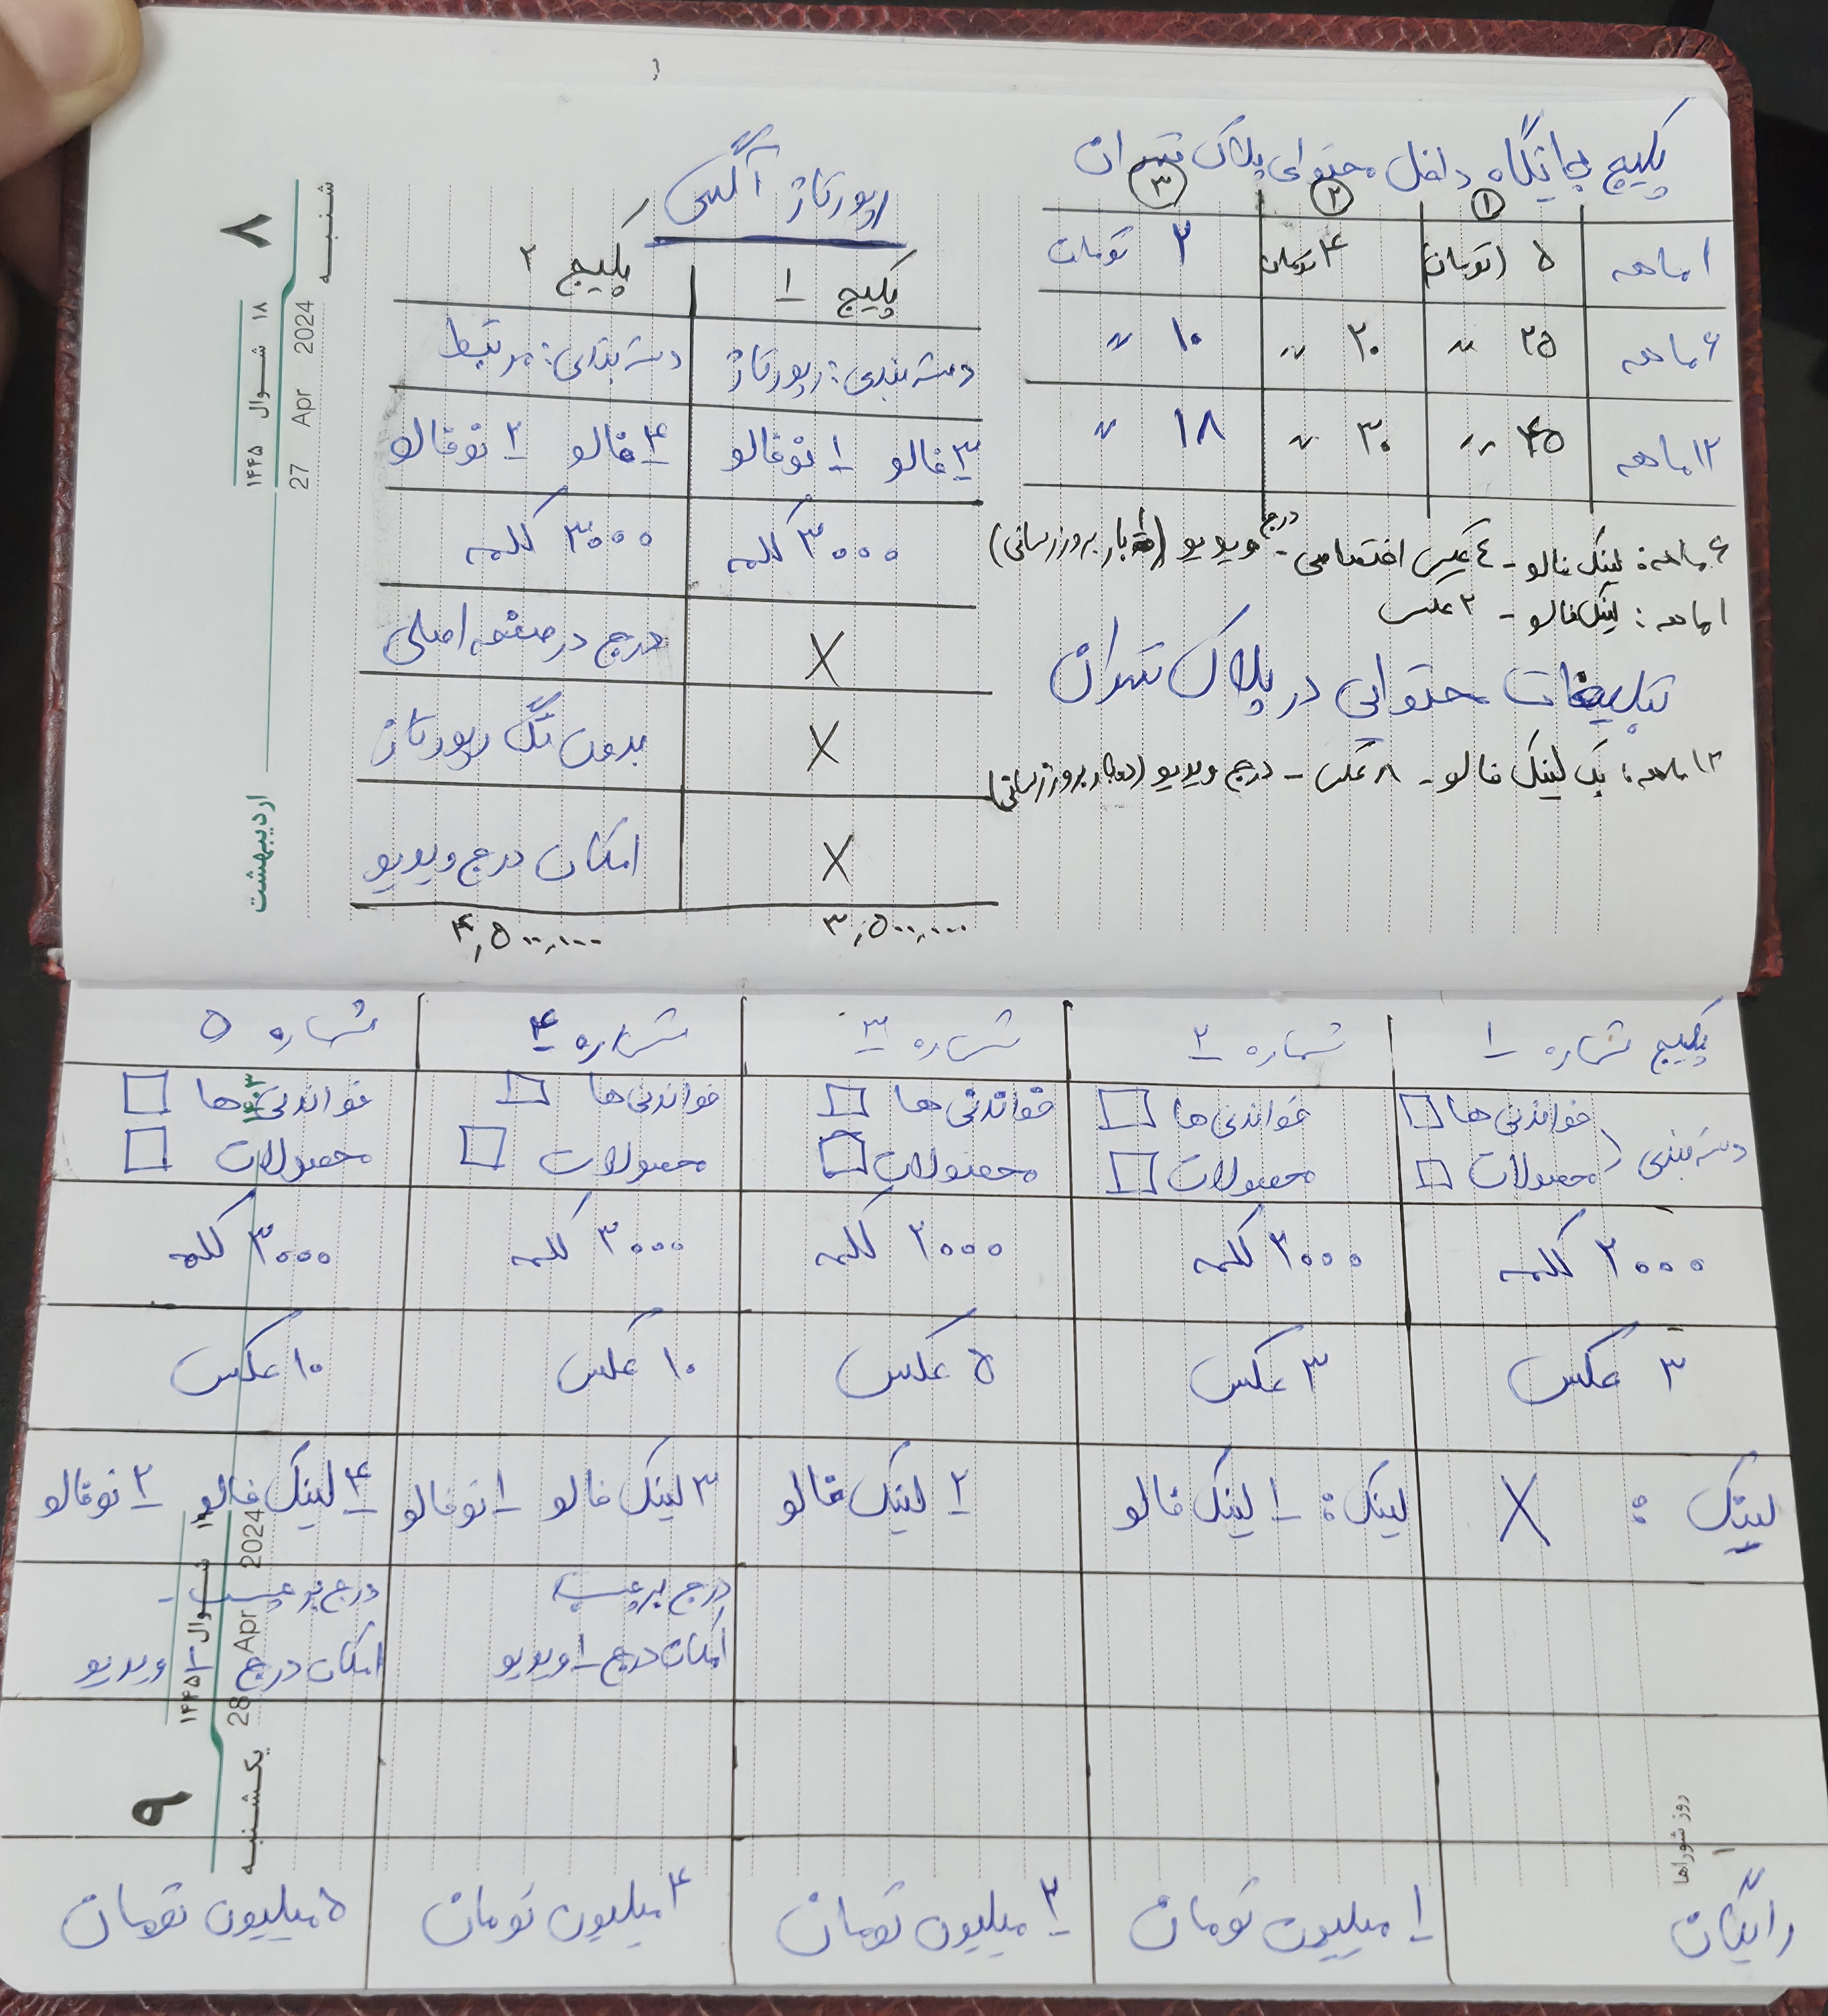 پکیج جایگاه داخل محتوای پلاک تهران
① ② ③
۱ ماهه ۵ (تومان) ۴ تومان ۲ تومان
۶ ماهه ۲۵ 〃 ۲۰ 〃 ۱۰ 〃
۱۲ ماهه ۴۵ 〃 ۳۰ 〃 ۱۸ 〃
۶ ماهه: لینک فالو - ٤ عکس اختصاصی - درج ویدیو ( بار بروزرسانی)
۱ ماهه: لینک فالو - ۲ عکس
تبلیغات محتوایی در پلاک تهران
۱۲ ماهه: بک لینک فالو - ۸ عکس - درج ویدیو (دوبار بروزرسانی)
رپورتاژ آگهی
پکیج ۱ پکیج ۲
دسته بندی: رپورتاژ دسته بندی: مرتبط
۳ فالو ۱ نوفالو ۴ فالو ۲ نوفالو
۳۰۰۰ کلمه ۳۰۰۰ کلمه
X درج در صفحه اصلی
X بدون تگ رپورتاژ
X امکان درج ویدیو
۳,۵۰۰,۰۰۰ ۴,۵۰۰,۱۰۰
۸
شنبه
۱۸ شوال ۱۴۴۵
27 Apr 2024
اردیبهشت
پکیج شماره ۱ شماره ۲ شماره ۳ شماره ۴ شماره ۵
دسته بندی خواندنی ها خواندنی ها خواندنی ها خواندنی ها خواندنی ها
محصولات محصولات محصولات محصولات محصولات
۲۰۰۰ کلمه ۲۰۰۰ کلمه ۲۰۰۰ کلمه ۳۰۰۰ کلمه ۳۰۰۰ کلمه
۳ عکس ۳ عکس ۵ عکس ۱۰ عکس ۱۰ عکس
لینک: X لینک: ۱ لینک فالو ۲ لینک فالو ۳ لینک فالو ۱ نوفالو ۴ لینک فالو ۲ نوفالو
درج برچسب درج برچسب -
امکان درج ۱ ویدیو امکان درج ویدیو
رایگان ۱ میلیون تومان ۲ میلیون تومان ۴ میلیون تومان ۵ میلیون تومان
۱۴۰۳
۹
یکشنبه
۱۹ شوال ۱۴۴۵
28 Apr 2024
روز شوراها